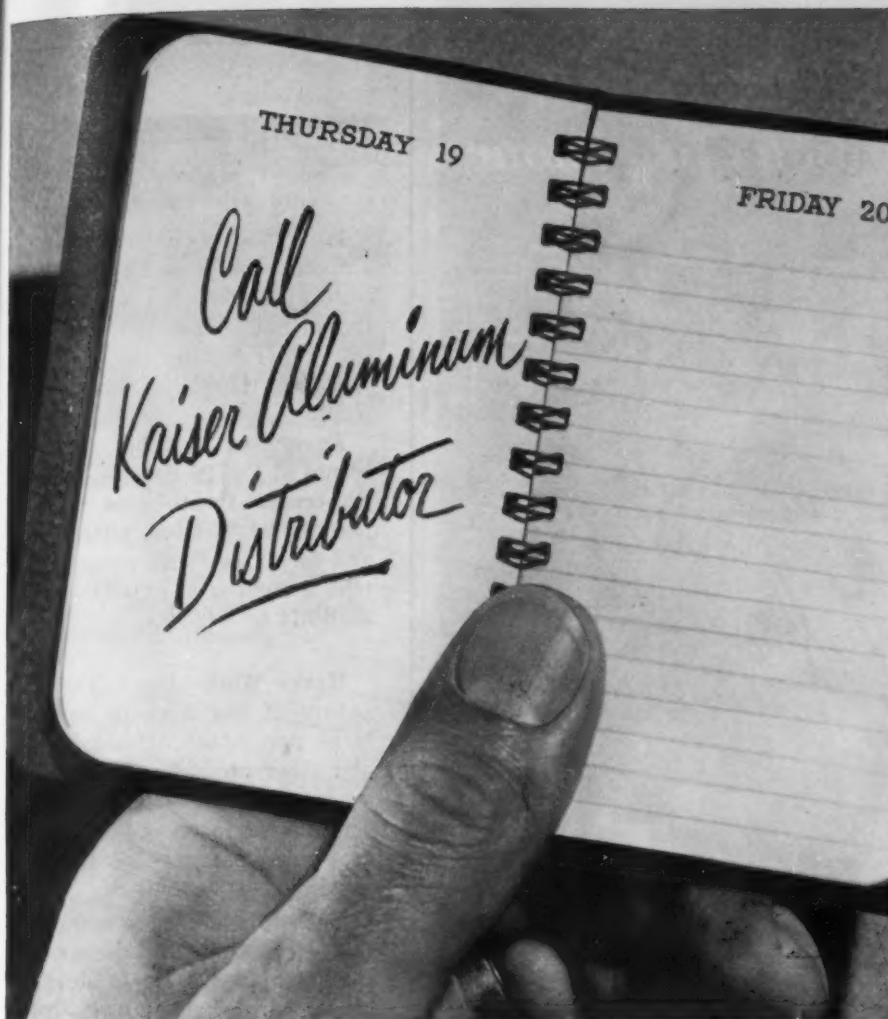 THURSDAY 19
Call
Kaiser Aluminum
Distributor
FRIDAY 20